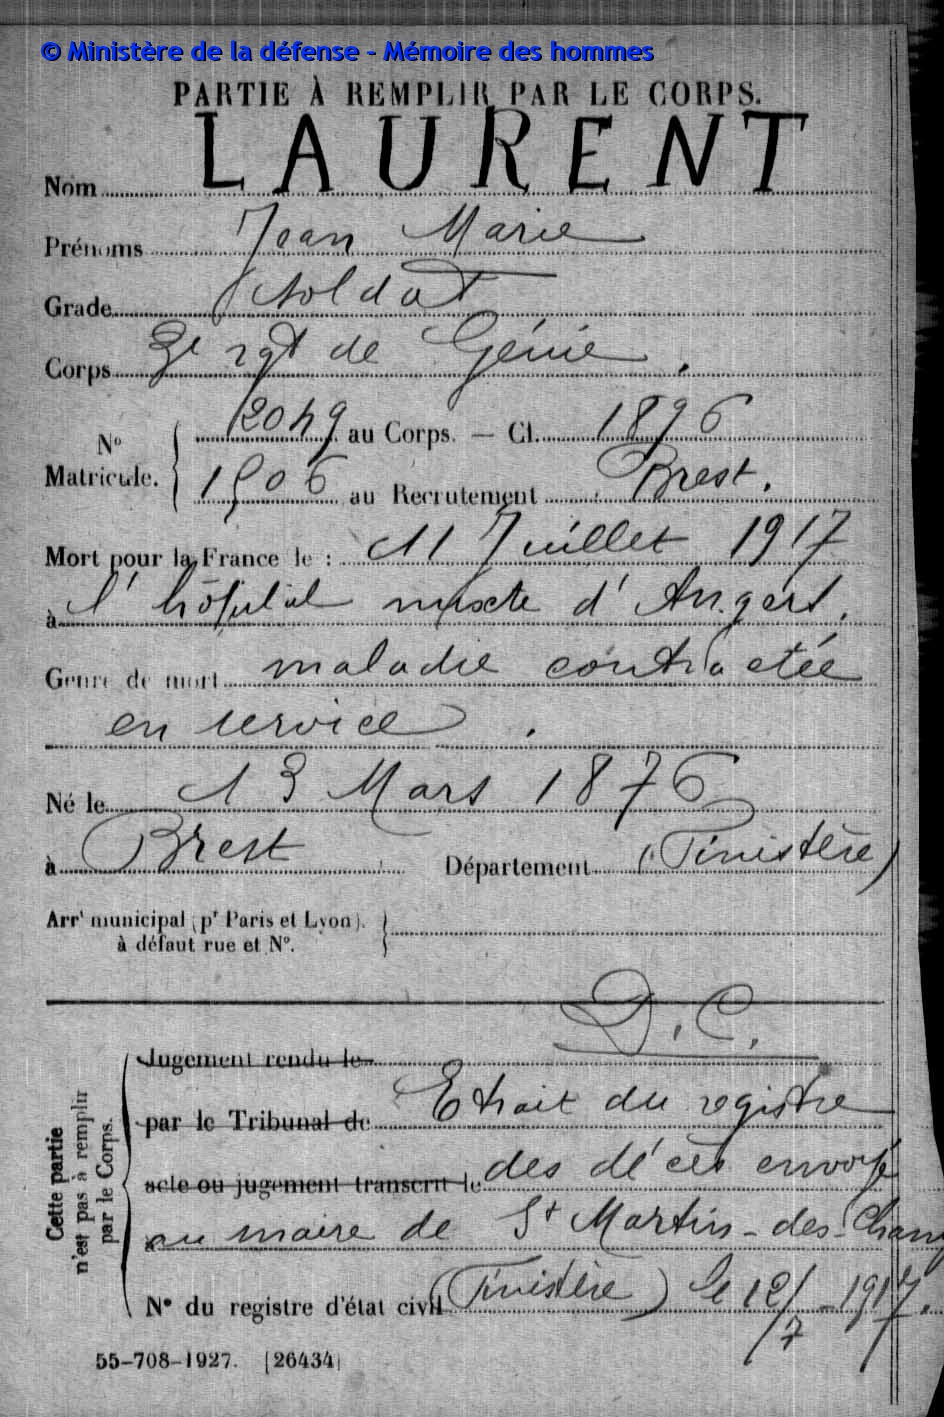 © Ministère de la défense - Mémoire des hommes
PARTIE À REMPLIR PAR LE CORPS.
Nom LAURENT
Prénoms Jean Marie
Grade Soldat
Corps 3e rgt de Génie.
N° Matricule. { 12049 au Corps. — Cl. 1896
1506 au Recrutement Brest.
Mort pour la France le : 11 Juillet 1917
à l'hôpital mixte d'Angers.
Genre de mort maladie contractée
en service.
Né le 13 Mars 1876
à Brest Département (Finistère)
Arrt municipal (pr Paris et Lyon).
à défaut rue et N°.
D.C.
Cette partie
n'est pas à remplir
par le Corps.
Jugement rendu le
par le Tribunal de Extrait du registre
acte ou jugement transcrit le des décès envoyé
au maire de St Martin-des-Champ
N° du registre d'état civil (Finistère) le 12/7-1917.
55-708-1927. [26434]